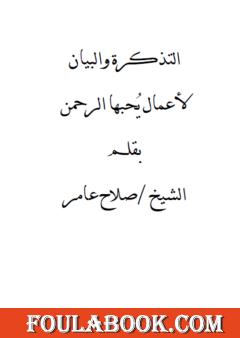 التذكرة والبيان
لأعمال يُحبها الرحمن
بقلم
الشيخ / صلاح عامر
FOULABOOK.COM